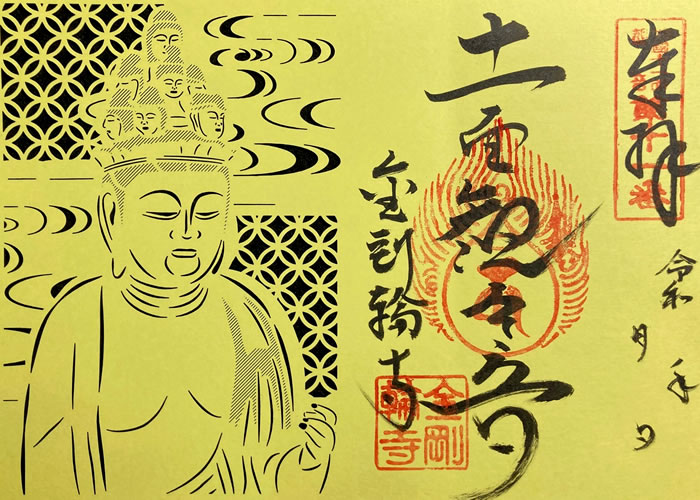 奉拝
令和 年 月 日
十一面観世音
金剛輪寺
金剛
輪寺